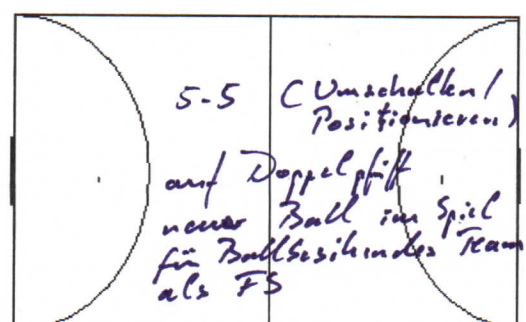 5-5 (Umschalten/
Positionieren)
auf Doppelpfiff
neuer Ball im Spiel
für Ballbesitzendes Team
als FS